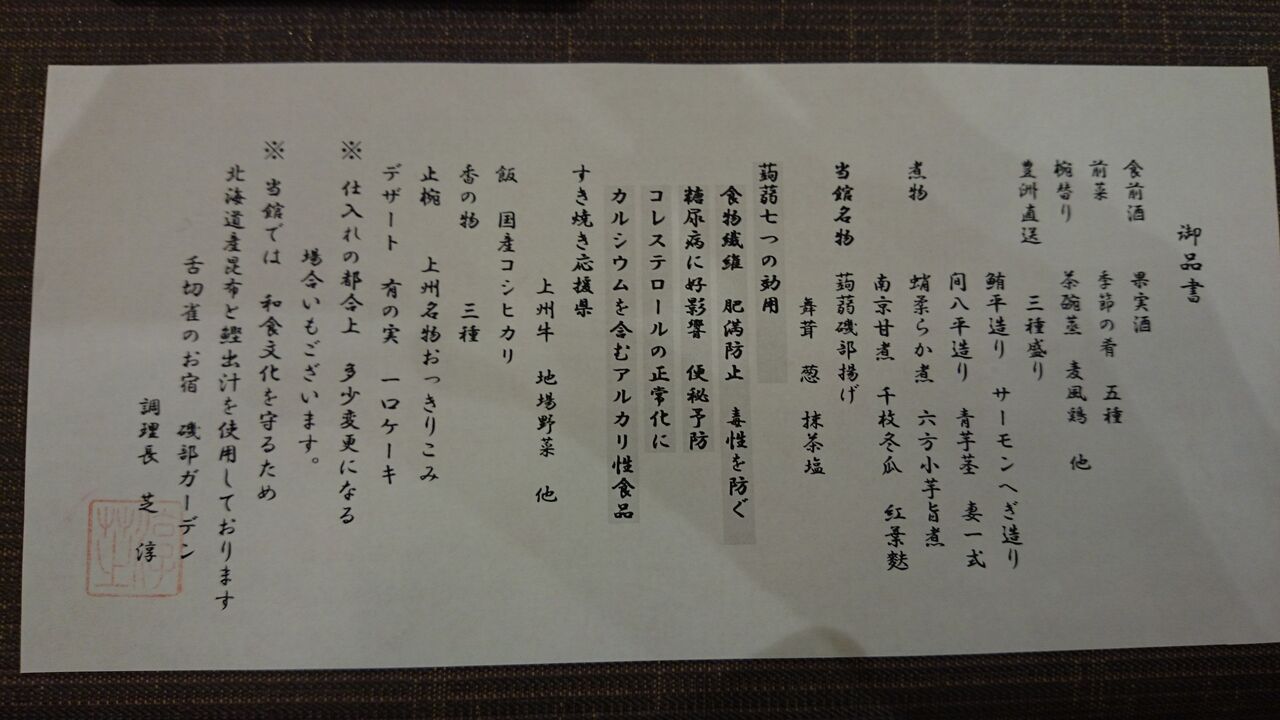 御品書
食前酒　果実酒
前菜　季節の肴　五種
椀替り　茶碗蒸　麦風鶏　他
豊洲直送　三種盛り
鮪平造り　サーモンへぎ造り
间八平造り　青芋茎　妻一式
煮物　蛸柔らか煮　六方小芋旨煮
南京甘煮　千枚冬瓜　紅葉麩
当館名物　蒟蒻磯部揚げ
舞茸　葱　抹茶塩
蒟蒻七つの効用
食物繊維　肥満防止　毒性を防ぐ
糖尿病に好影響　便秘予防
コレステロールの正常化に
カルシウムを含むアルカリ性食品
すき焼き応援県
上州牛　地場野菜　他
飯　国産コシヒカリ
香の物　三種
止椀　上州名物おっきりこみ
デザート　有の実　一口ケーキ
※　仕入れの都合上　多少変更になる
場合いもございます。
※　当館では　和食文化を守るため
北海道産昆布と鰹出汁を使用しております
舌切雀のお宿　磯部ガーデン
調理長　芝　淳